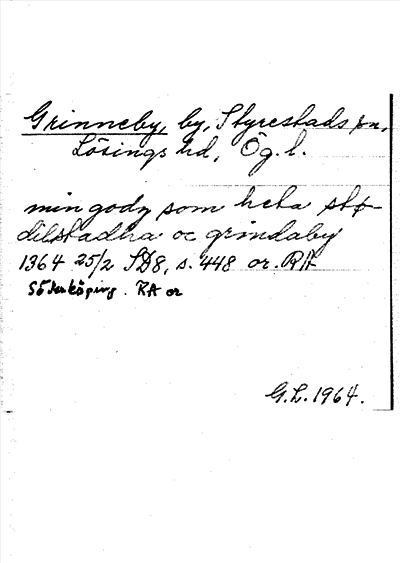 Grinneby, by, Styrestads sn,
Lösings hd, Ög. l.
min godz som heta stø-
dilstadha oc grindaby
1364 25/2 SD8, s. 448 or. RA
Söderköping. RA or
G.L. 1964.